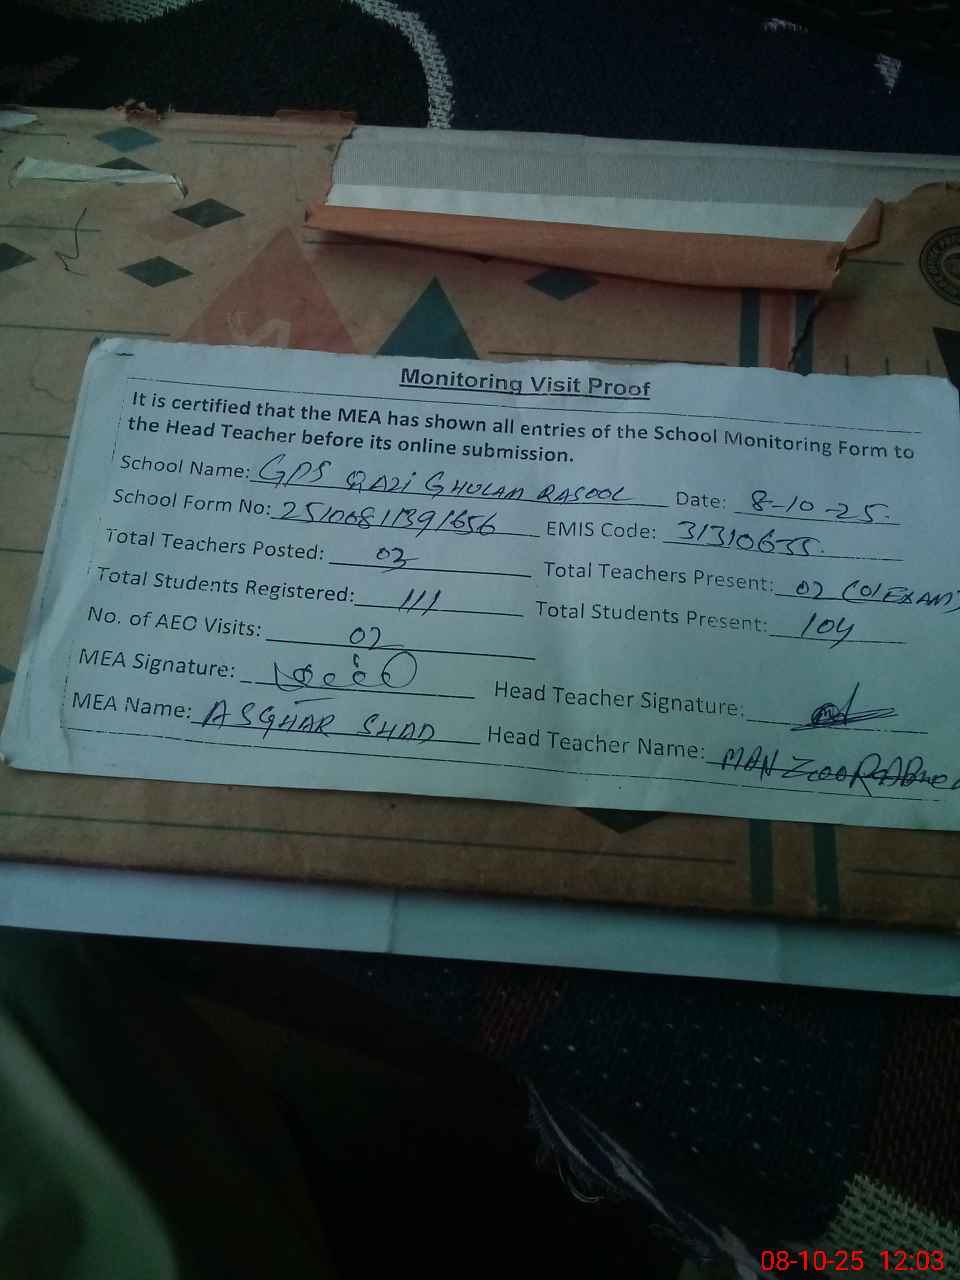 Monitoring Visit Proof
It is certified that the MEA has shown all entries of the School Monitoring Form to
the Head Teacher before its online submission.
School Name: GPS QAZI GHULAM RASOOL Date: 8-10-25.
School Form No: 2510081391656 EMIS Code: 31310655.
Total Teachers Posted: 03 Total Teachers Present: 02 (01 EXAM)
Total Students Registered: 111 Total Students Present: 104
No. of AEO Visits: 02
MEA Signature: Head Teacher Signature:
MEA Name: ASGHAR SHAD Head Teacher Name: MANZOOR AHMED
08-10-25 12:03